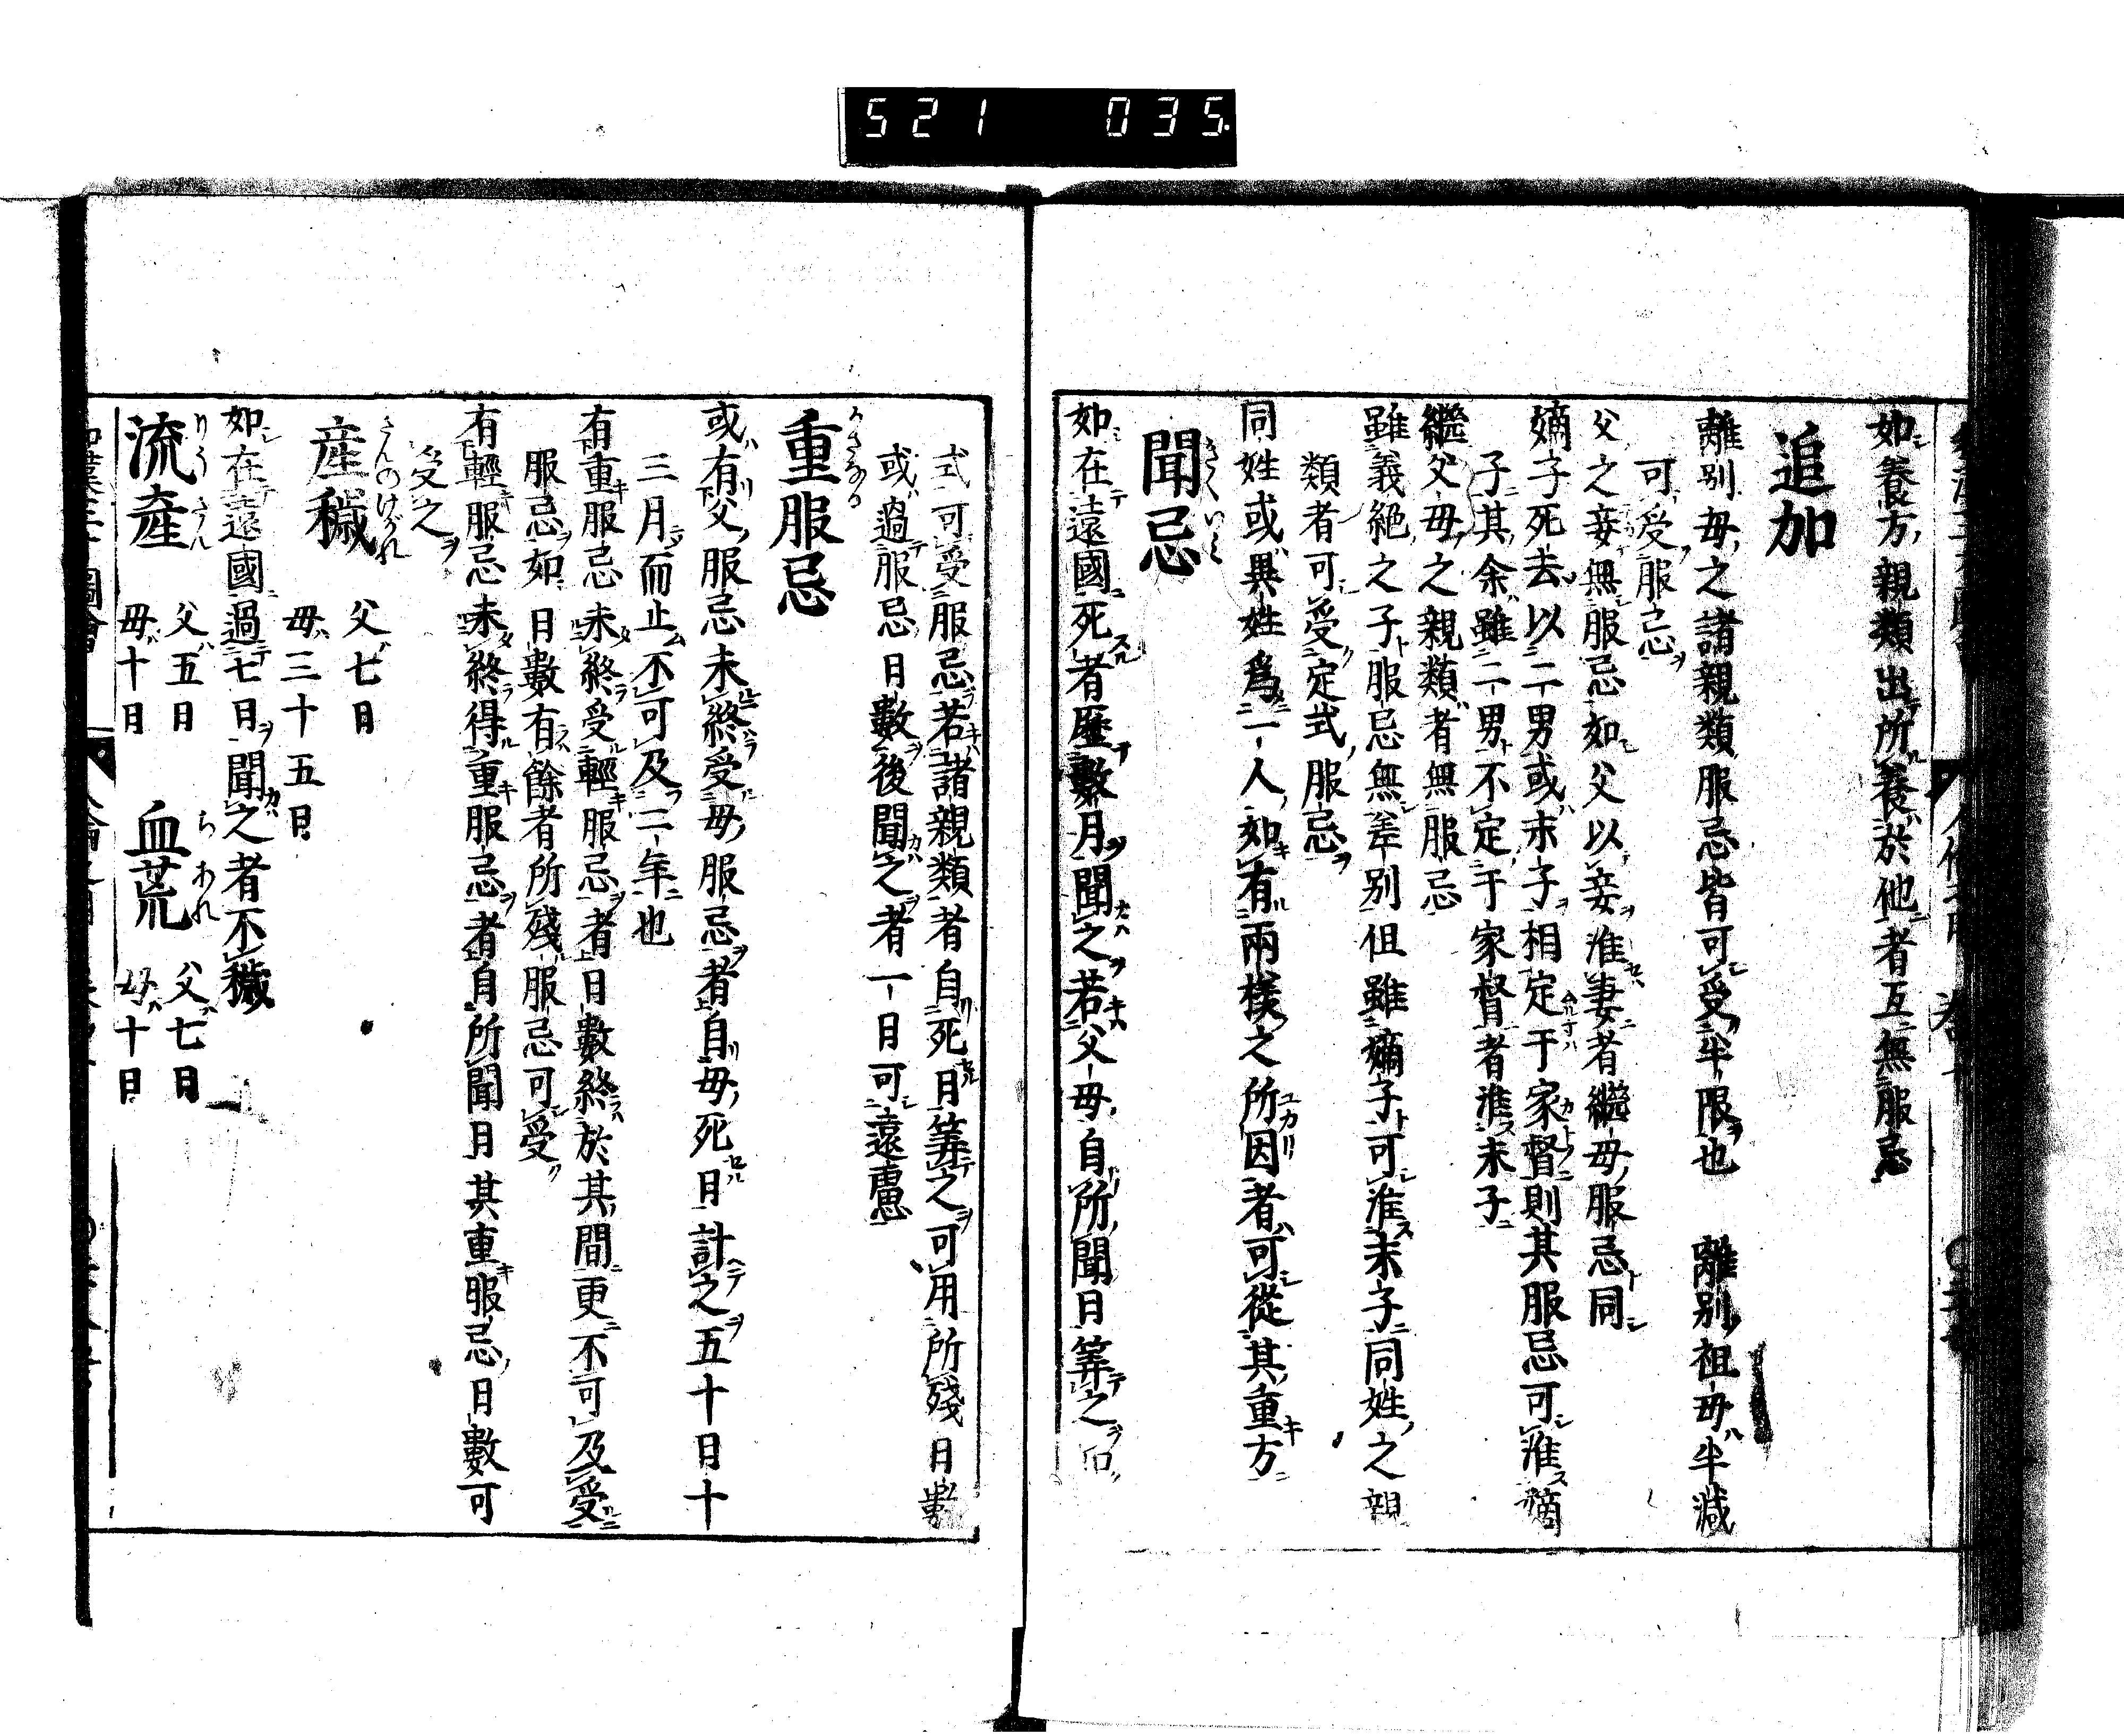 521 035
如養方親類出所養於他者互無服忌
追加
離別母之諸親類服忌皆可受半限也 離別祖母半減
可受服忌
父之妾無服忌如父以妾准妻者繼母服忌同
嫡子死去以二男或末子相定于家督則其服忌可准嫡
子其余雖二男不定于家督者准末子
繼父母之親類者無服忌
雖義絕之子服忌無差別但雖嫡子可准末子同姓之親
類者可受定式服忌
同姓或異姓爲一人如有兩樣之所因者可從其重方
聞忌
如在遠國死者歷數月聞之若父母自所聞日筭之
式可受服忌若諸親類者自死月筭之可用所殘日數
或過服忌日數後聞之者一日可遠慮
重服忌
或有父服忌未終受母服忌者自母死日計之五十日十
三月而止不可及二年也
有重服忌未終受輕服忌者日數終於其間更不可及受
服忌如日數有餘者所殘服忌可受
有輕服忌未終得重服忌者自所聞日其重服忌日數可
受之
産穢 さんのけがれ
父七日
母三十五日
如在遠國過七日聞之者不穢
流產 りうさん 父五日 母十日
血荒 ちあれ 父七日 母十日